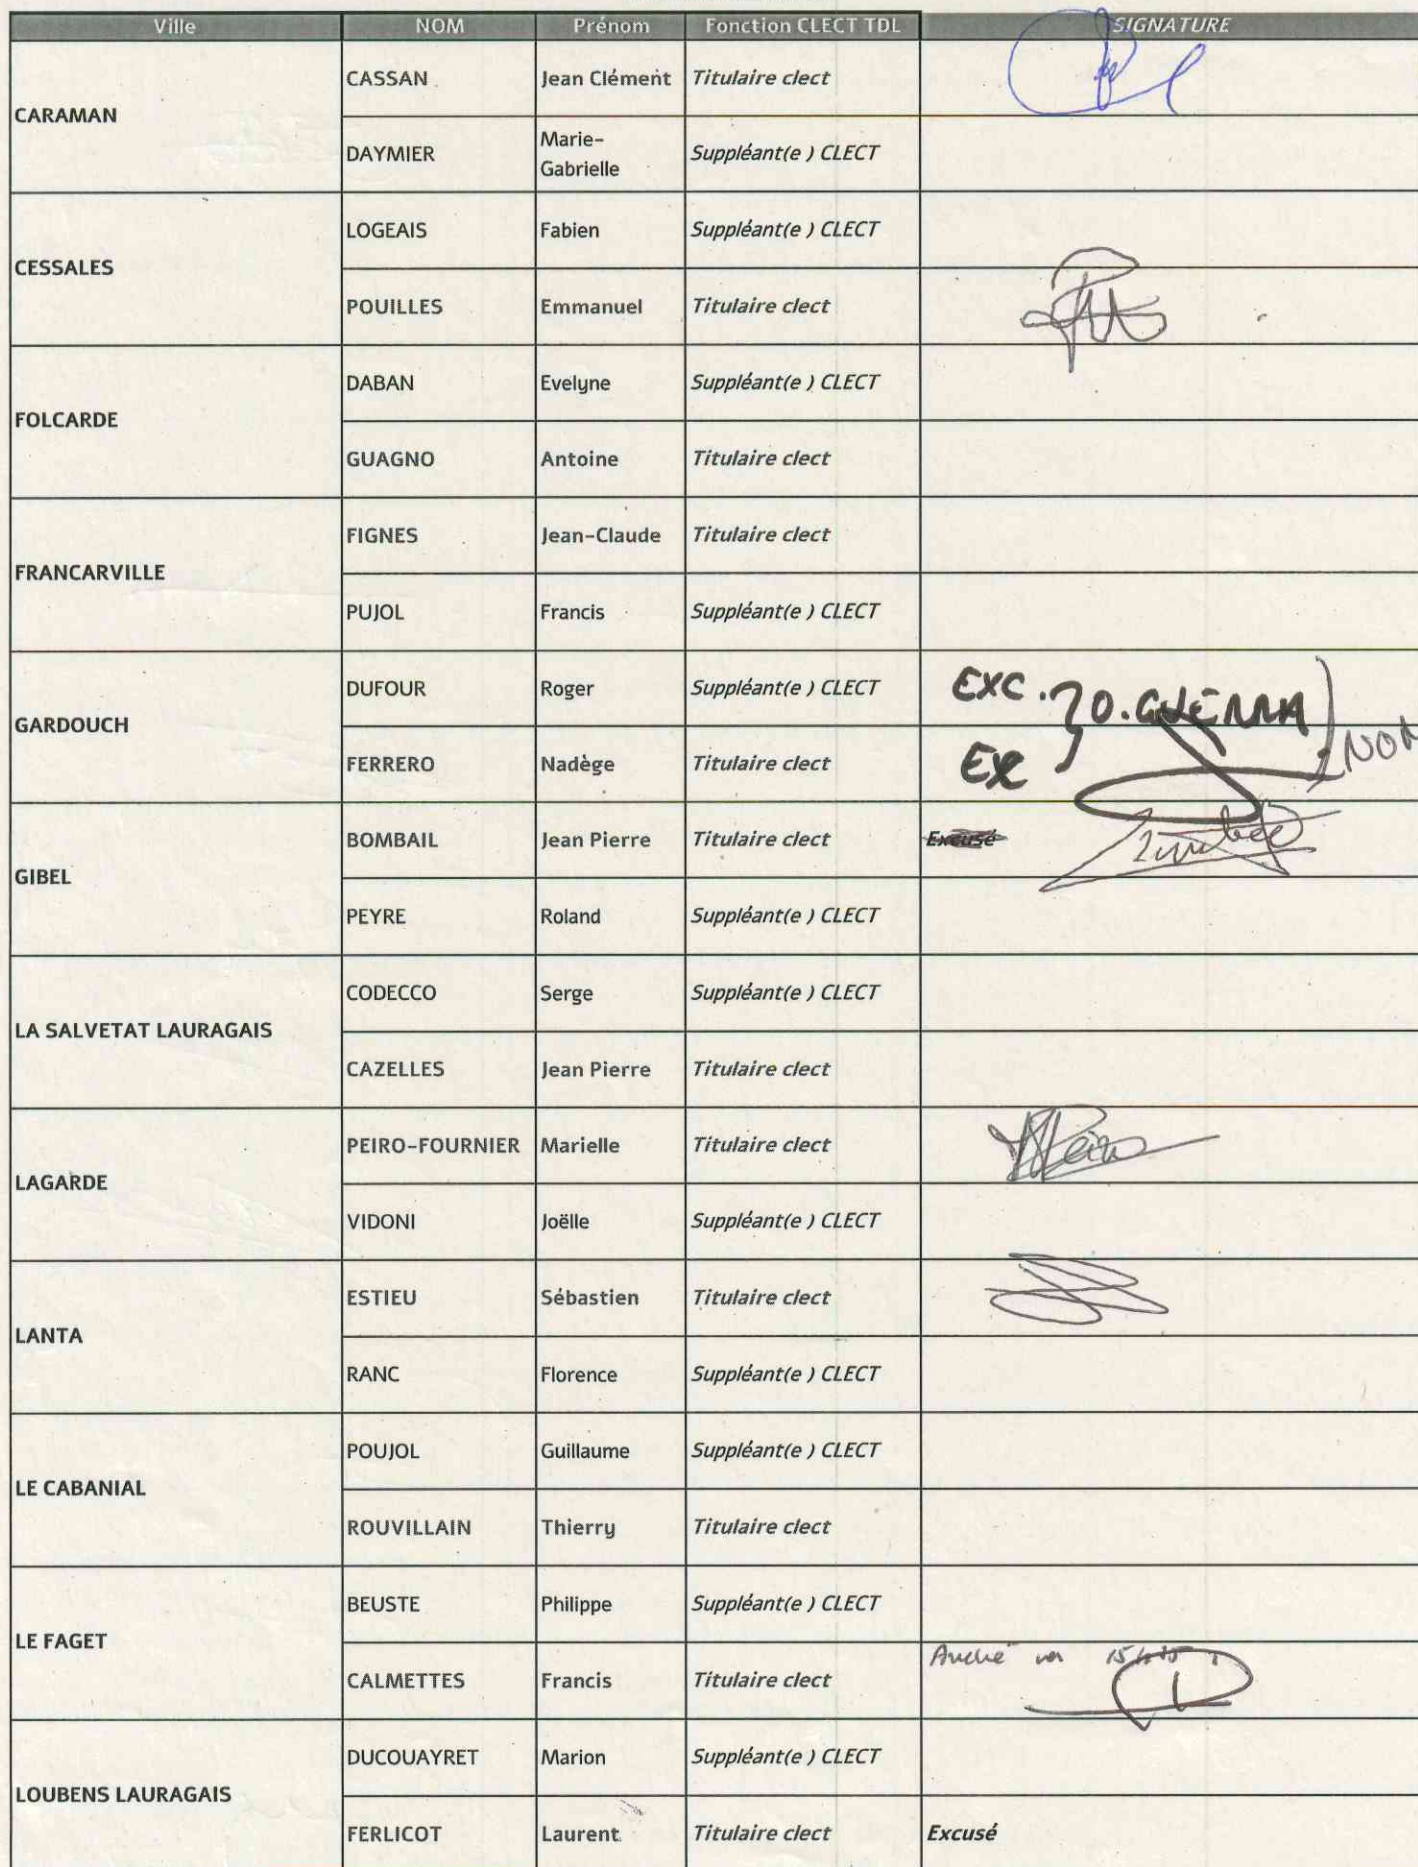 Ville NOM Prénom Fonction CLECT TDL SIGNATURE
CARAMAN
CASSAN Jean Clément Titulaire clect
DAYMIER Marie-Gabrielle Suppléant(e ) CLECT
CESSALES
LOGEAIS Fabien Suppléant(e ) CLECT
POUILLES Emmanuel Titulaire clect
FOLCARDE
DABAN Evelyne Suppléant(e ) CLECT
GUAGNO Antoine Titulaire clect
FRANCARVILLE
FIGNES Jean-Claude Titulaire clect
PUJOL Francis Suppléant(e ) CLECT
GARDOUCH
DUFOUR Roger Suppléant(e ) CLECT EXC. O. GUERRA
FERRERO Nadège Titulaire clect EX NON
GIBEL
BOMBAIL Jean Pierre Titulaire clect Excusé
PEYRE Roland Suppléant(e ) CLECT
LA SALVETAT LAURAGAIS
CODECCO Serge Suppléant(e ) CLECT
CAZELLES Jean Pierre Titulaire clect
LAGARDE
PEIRO-FOURNIER Marielle Titulaire clect
VIDONI Joëlle Suppléant(e ) CLECT
LANTA
ESTIEU Sébastien Titulaire clect
RANC Florence Suppléant(e ) CLECT
LE CABANIAL
POUJOL Guillaume Suppléant(e ) CLECT
ROUVILLAIN Thierry Titulaire clect
LE FAGET
BEUSTE Philippe Suppléant(e ) CLECT
CALMETTES Francis Titulaire clect
LOUBENS LAURAGAIS
DUCOUAYRET Marion Suppléant(e ) CLECT
FERLICOT Laurent Titulaire clect Excusé